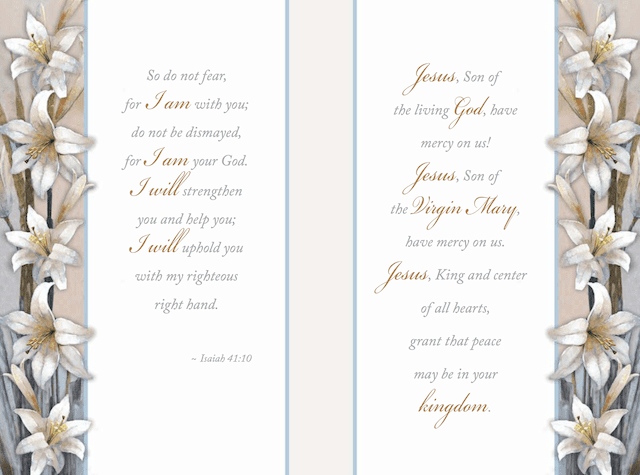 So do not fear,
for I am with you;
do not be dismayed,
for I am your God.
I will strengthen
you and help you;
I will uphold you
with my righteous
right hand.
~ Isaiah 41:10
Jesus, Son of
the living God, have
mercy on us!
Jesus, Son of
the Virgin Mary,
have mercy on us.
Jesus, King and center
of all hearts,
grant that peace
may be in your
kingdom.